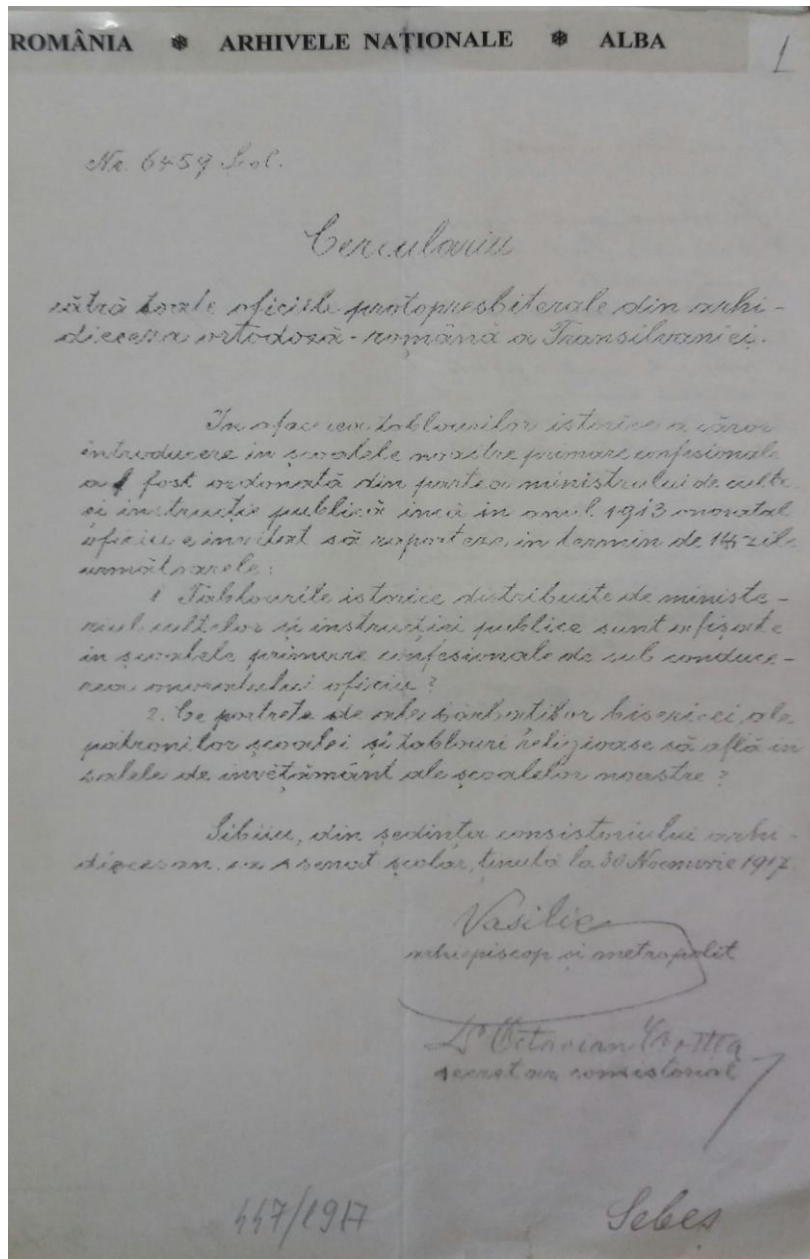 ROMÂNIA ❄ ARHIVELE NAȚIONALE ❄ ALBA
1
Nr. 6459 Școl.
Cerculariu
cătră toate oficiile protopresbiterale din arhi-
dieceza ortodoxă-română a Transilvaniei.
In afacerea tablourilor istorice a căror
introducere in școalele noastre primare confesionale
a fost ordonată din partea ministrului de culte
și instrucție publică incă in anul 1913 onoratul
oficiu e invitat să raporteze in termin de 14 zile
următoarele:
1. Tablourile istorice distribuite de ministe-
riul cultelor și instrucției publice sunt afișate
in școalele primare confesionale de sub conduce-
rea onoratului oficiu?
2. Ce portrete de ale bărbaților bisericei, ale
patronilor școalei și tablouri religioase să află in
salele de invețământ ale școalelor noastre?
Sibiiu, din ședința consistoriului arhi-
diecezan, ca senat școlar, ținută la 30 Noemvrie 1917.
Vasilie
arhiepiscop și metropolit
Dr Octavian
secretar consistorial
447/1917
Sebeș